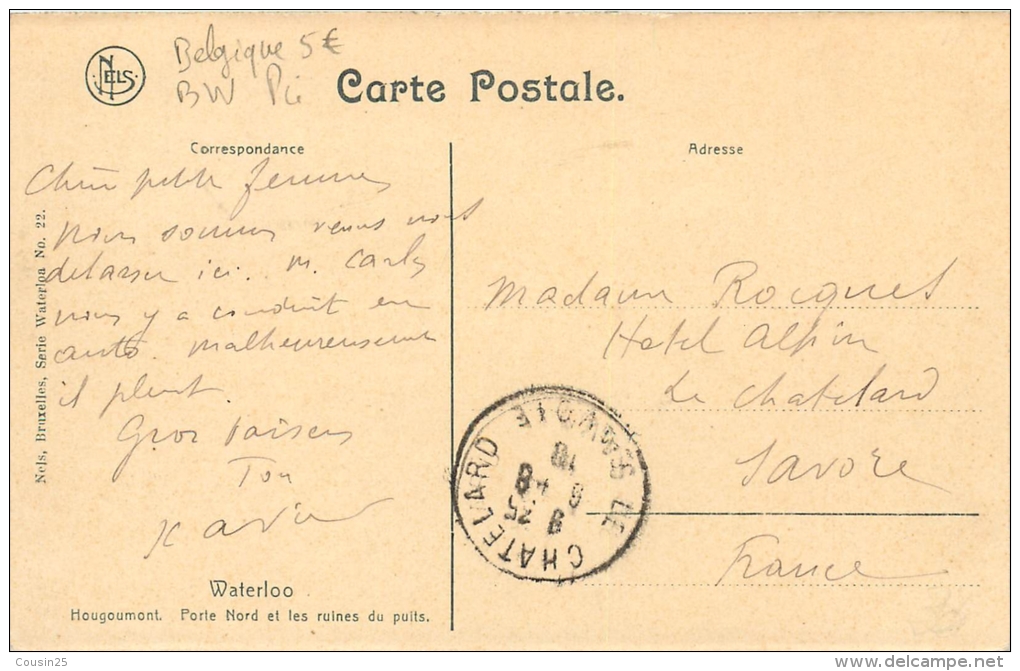 NELS
Belgique 5€
BW Pi
Carte Postale.
Correspondance
Adresse
Nels, Bruxelles, Serie Waterloo No. 22.
Chère petite femme
Nous sommes venus nous
delasser ici. M. Carly
nous y a conduit en
auto. Malheureusement
il pleut.
Gros baisers
Ton
Xavier
Madame Rocques
Hotel Alpin
Le Chatelard
Savoie
France
LE CHATELARD SAVOIE
Waterloo
Hougoumont. Porte Nord et les ruines du puits.
Cousin25
www.delcampe.net